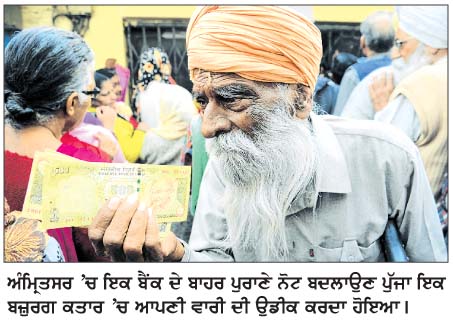 500
ਅੰਮ੍ਰਿਤਸਰ ’ਚ ਇਕ ਬੈਂਕ ਦੇ ਬਾਹਰ ਪੁਰਾਣੇ ਨੋਟ ਬਦਲਾਉਣ ਪੁੱਜਾ ਇਕ
ਬਜ਼ੁਰਗ ਕਤਾਰ ’ਚ ਆਪਣੀ ਵਾਰੀ ਦੀ ਉਡੀਕ ਕਰਦਾ ਹੋਇਆ।